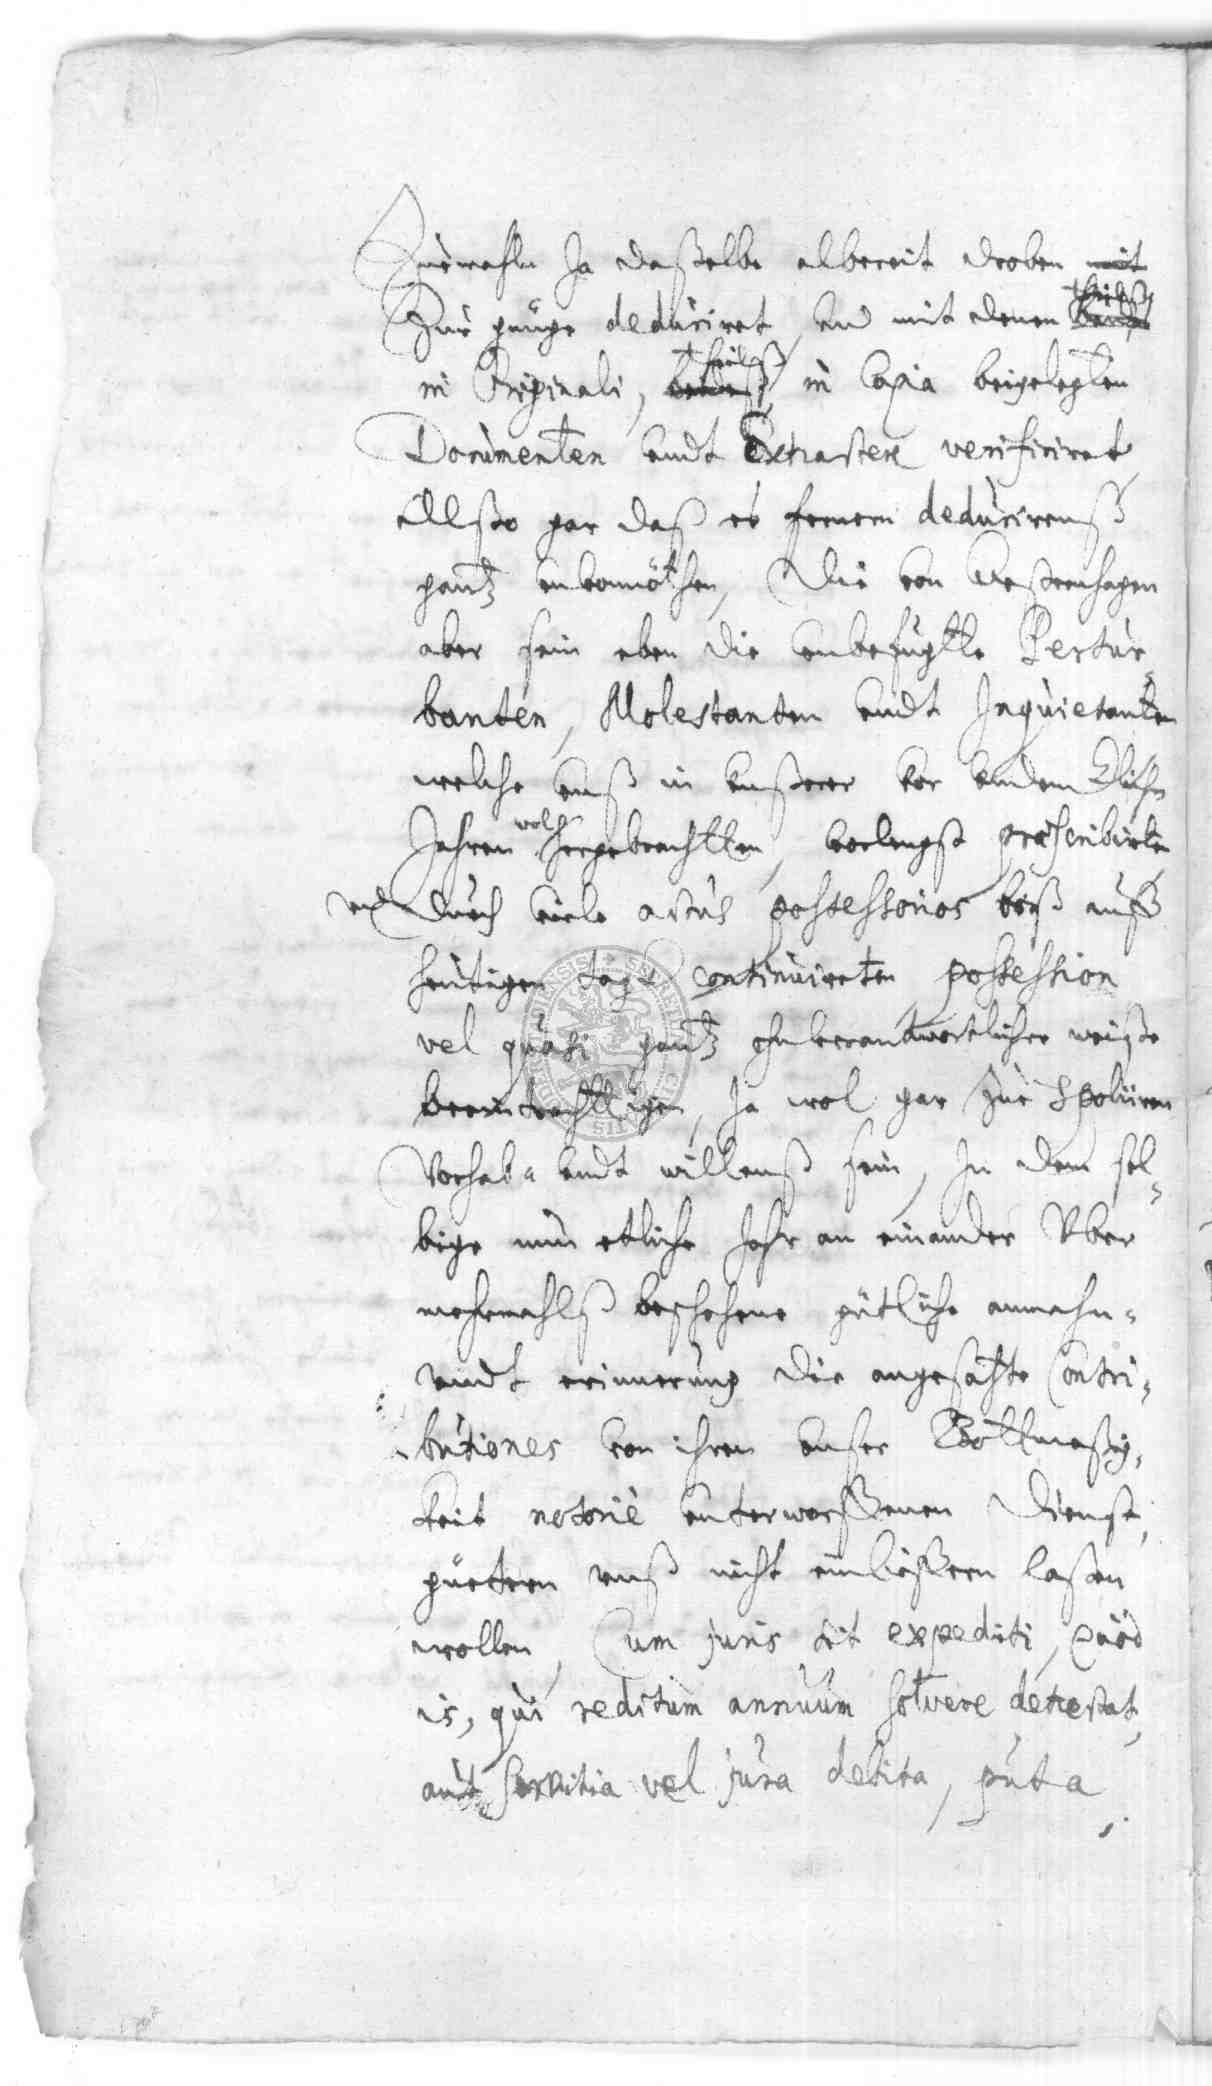 Zuemahln Ja daßelbe albereit droben mit
Zur gnüge deduciret, und mit denen theilß
in Originali, theilß in Copia beigelegten
Documenten undt Extracten verificiret
Allßo gar daß es fernern deducirenß
gantz unvonnöthen, Die von Westernhagen
aber sein eben die unbefugte Pertur-
banten, Molestanten undt Inquietanten
welche unß in unßerer vor undencklichen
Jahren wol hergebrachtten, vorlengst præscribirten
und durch viele actus possessorios biß auff
heutigen tagk continuireten possession
vel quasi gantz ohnverandtwortlicher weiße
beeintrechtigen, Ja wol gar zue spoliiren
Vorhabens undt willenß sein, In dem sel-
bige nun etliche Jahr an einander Uber
mehrmahlß beschehene gütliche anmahn-
undt erinnerung die angesatzte Contri-
butiones von ihren unser Bottmeßig-
keit notoriè unterworffenen Dienst-
güettern unß nicht einlieffern laßen
wollen, Cum juris sit expediti, Quòd
is, qui reditum annuum solvere detrectat,
aut servitia vel jura debita, puta